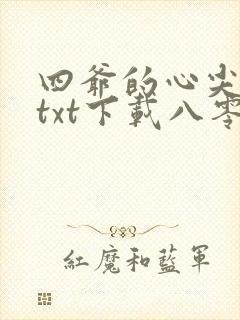 四爷的心尖
txt下載八零
紅魔和藍軍